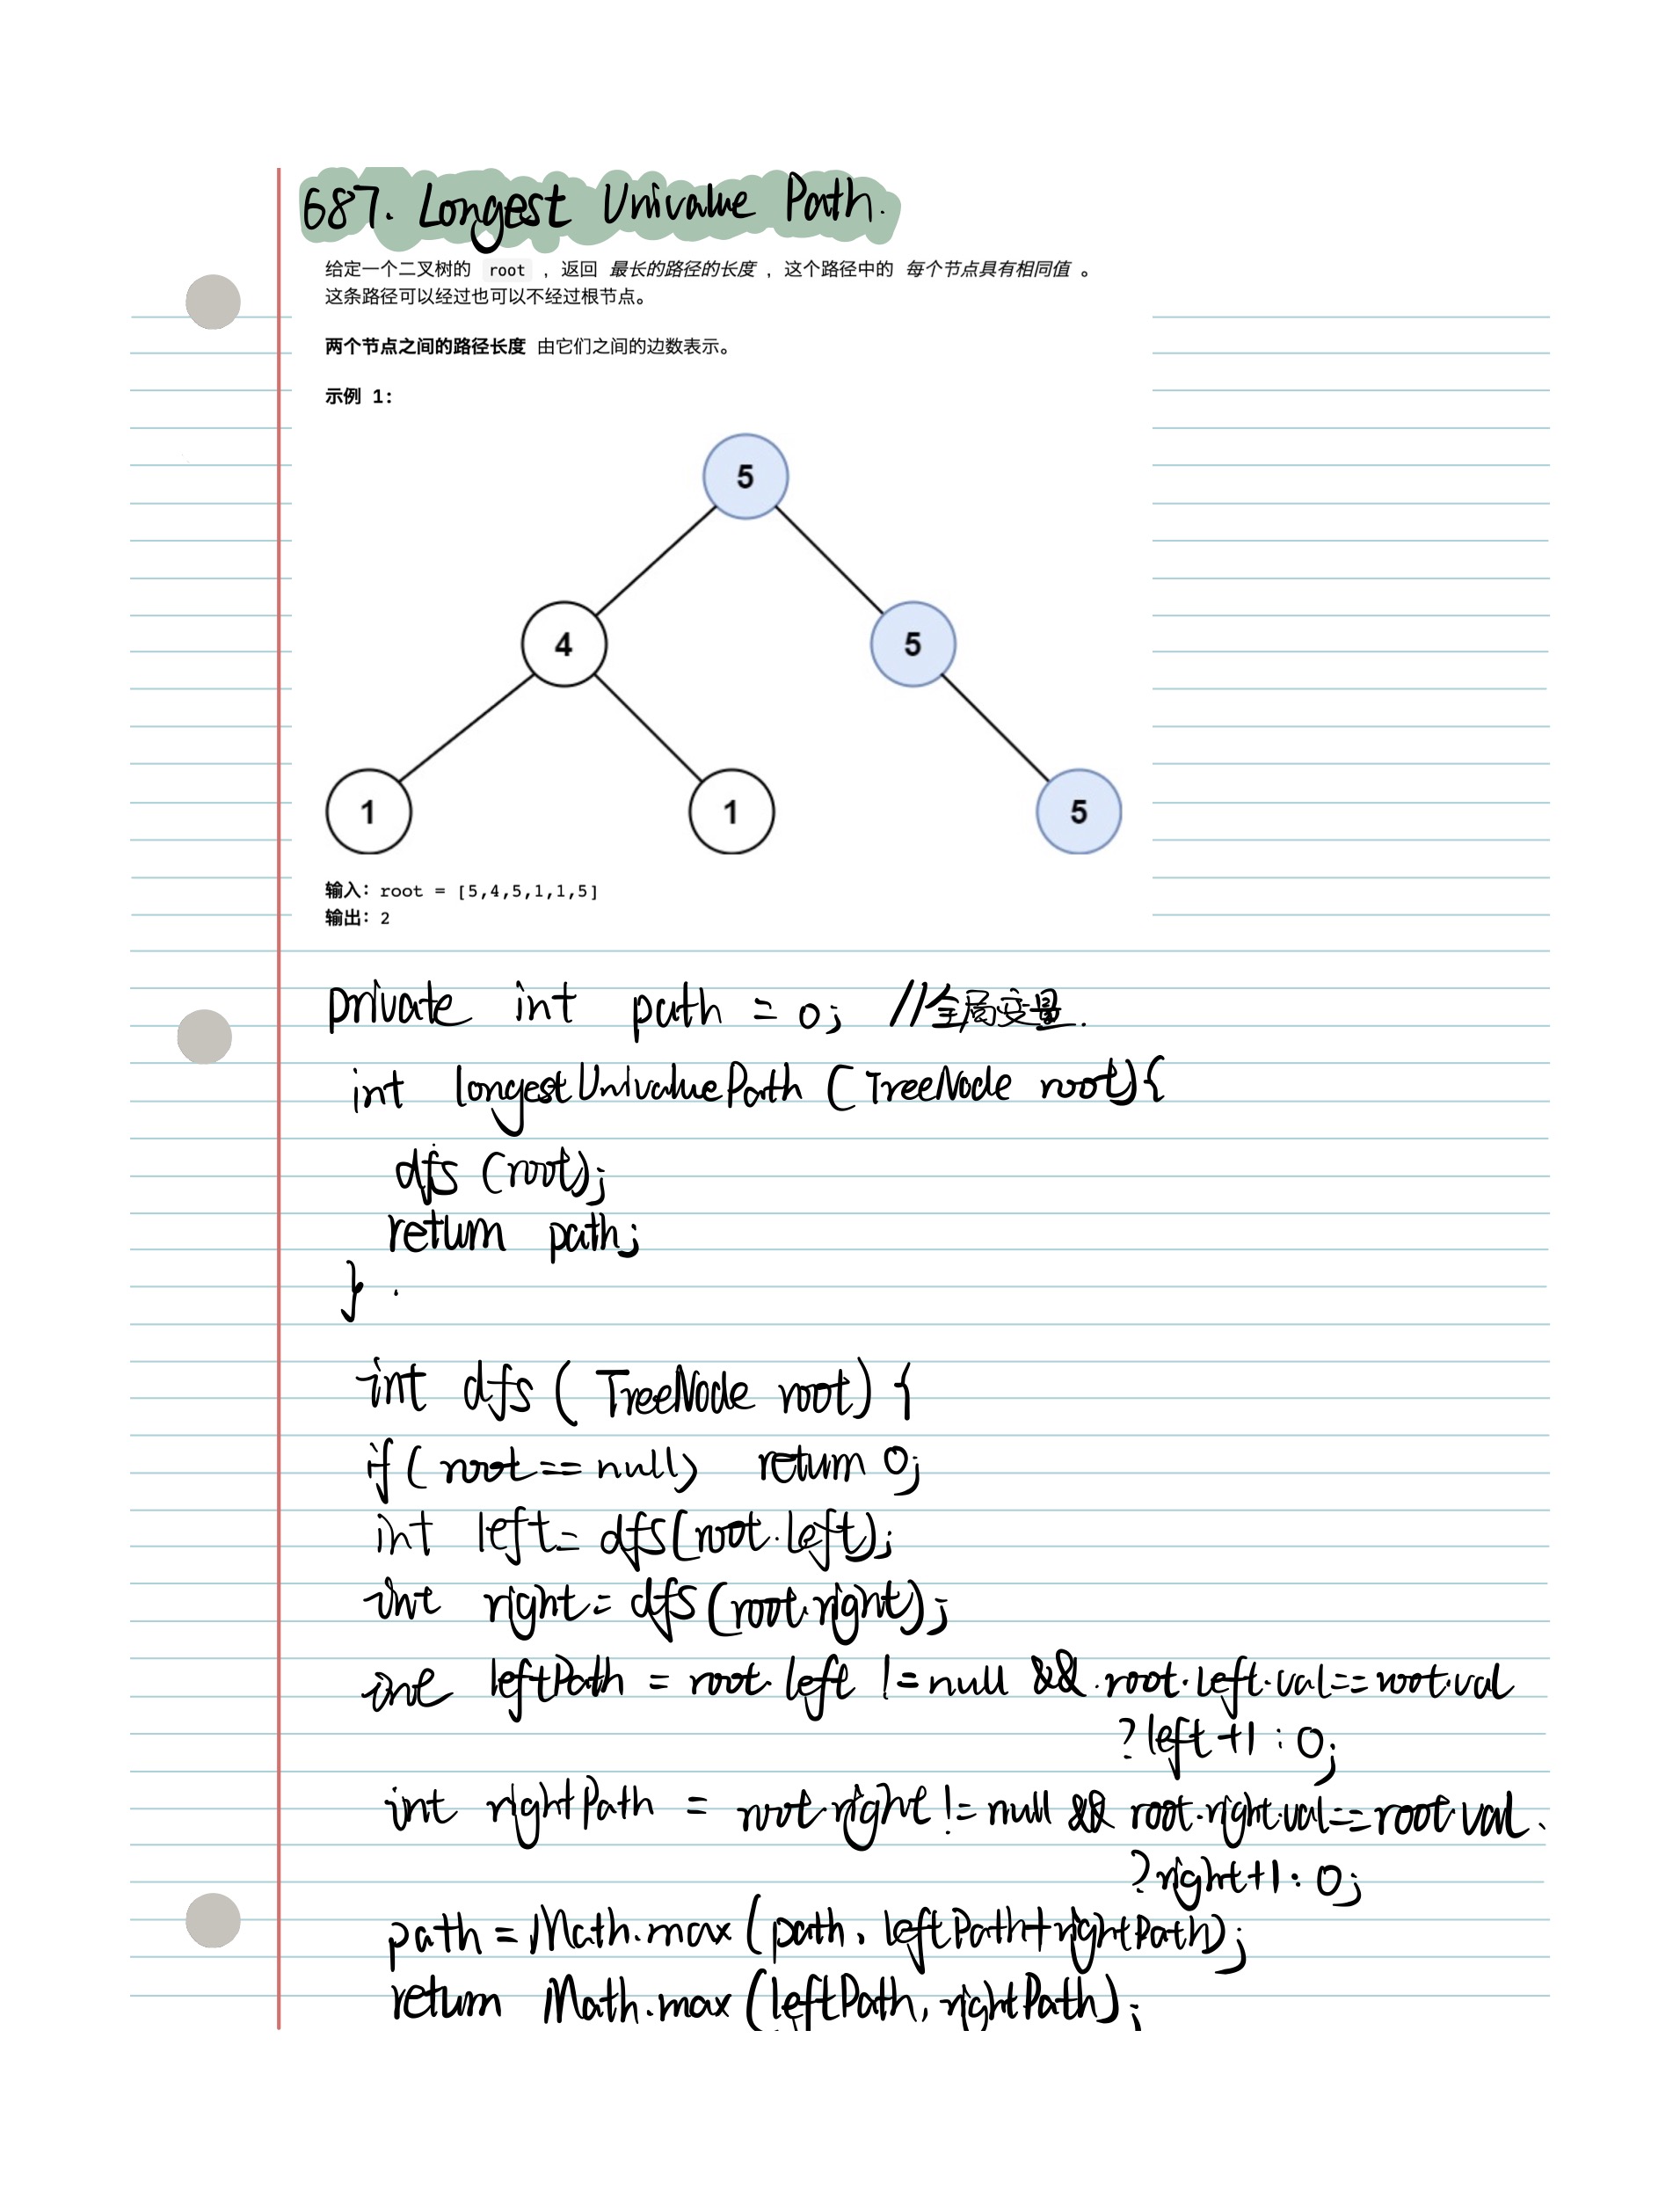 687. Longest Univalue Path.
给定一个二叉树的 root ，返回 最长的路径的长度 ，这个路径中的 每个节点具有相同值 。
这条路径可以经过也可以不经过根节点。
两个节点之间的路径长度 由它们之间的边数表示。
示例 1:
5
4 5
1 1 5
输入：root = [5,4,5,1,1,5]
输出：2
private int path = 0; //全局变量.
int longestUnivaluePath (TreeNode root){
dfs (root);
return path;
}.
int dfs ( TreeNode root) {
if( root==null) return 0;
int left= dfs(root.left);
int right= dfs(root.right);
int leftPath = root.left !=null && root.left.val==root.val
? left +1 : 0;
int rightPath = root.right!=null && root.right.val==root.val.
? right+1: 0;
path = Math.max (path, leftPath+rightPath);
return Math.max (leftPath, rightPath);